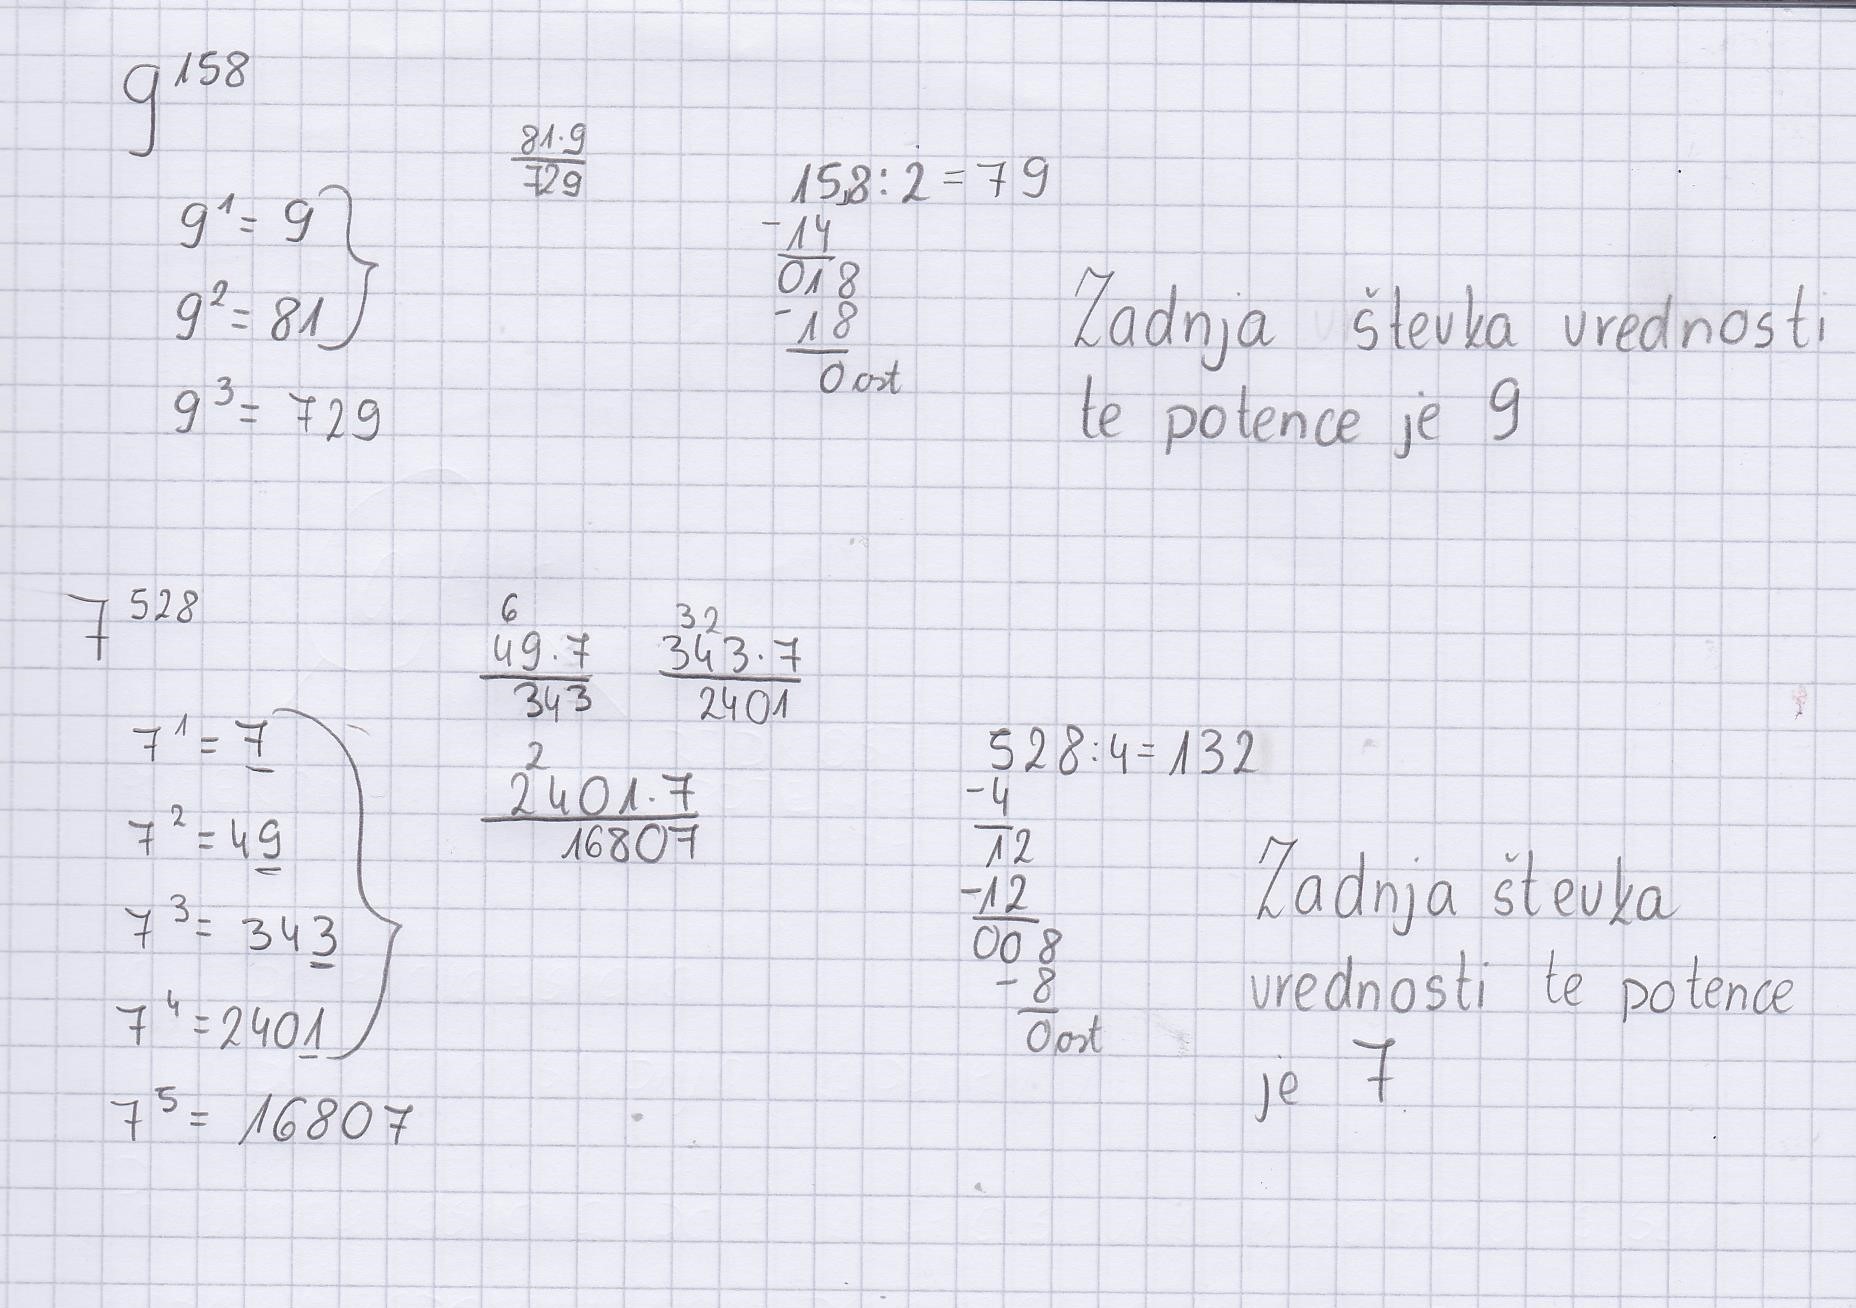 9^158
81·9
729
9^1 = 9
9^2 = 81
9^3 = 729
158:2=79
-14
018
-18
0 ost
Zadnja števka vrednosti
te potence je 9
7^528
6
49·7
343
32
343·7
2401
2
2401·7
16807
7^1 = 7
7^2 = 49
7^3 = 343
7^4 = 2401
7^5 = 16807
528:4=132
-4
12
-12
008
-8
0 ost
Zadnja števka
vrednosti te potence
je 7